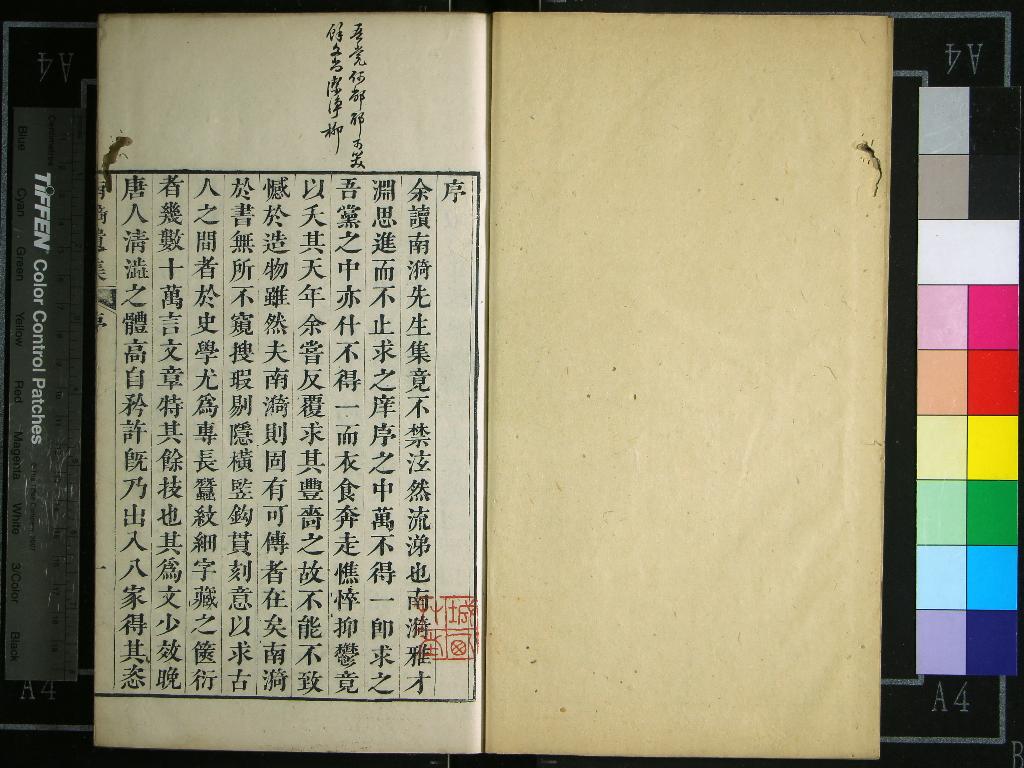 序
余讀南漪先生集竟不禁泫然流涕也南漪雅才
淵思進而不止求之庠序之中萬不得一卽求之
吾黨之中亦什不得一而衣食奔走憔悴抑鬱竟
以夭其天年余嘗反覆求其豐嗇之故不能不致
憾於造物雖然夫南漪則固有可傳者在矣南漪
於書無所不窺搜瑕剔隱橫竪鈎貫刻意以求古
人之間者於史學尤爲專長蠶紋細字藏之篋衍
者幾數十萬言文章特其餘技也其爲文少效晚
唐人清澁之體高自矜許旣乃出入八家得其态
南漪遺集
序
一
A4
A4
A4
A4
TIFFEN Color Control Patches
Centimetres
Blue
Cyan
Green
Yellow
Red
Magenta
White
3/Color
Black